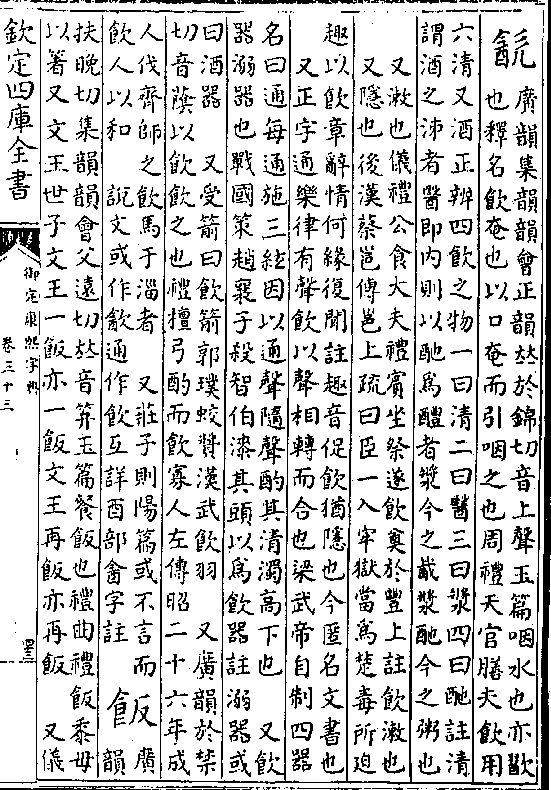 飲 廣韻集韻韻會正韻𠀤於錦切音上聲玉篇咽水也亦歠
也釋名飲奄也以口奄而引咽之也周禮天官膳夫飲用
六清又酒正辨四飲之物一曰清二曰醫三曰漿四曰酏註清
謂酒之沛者醫即內則以酏爲醴者漿今之酨漿酏今之粥也
又漱也儀禮公食大夫禮賓坐祭遂飲奠於豐上註飲漱也
又隱也後漢蔡邕傳邕上疏曰臣一入牢獄當爲楚毒所迫
趣以飲章辭情何緣復聞註趣音促飲猶隱也今匿名文書也
又正字通樂律有聲飲以聲相轉而合也梁武帝自制四器
名曰通每通施三絃因以通聲隨聲酌其清濁高下也 又飲
器溺器也戰國策趙襄子殺智伯漆其頭以爲飲器註溺器或
曰酒器 又受箭曰飲箭郭璞蛟贊漢武飲羽 又廣韻於禁
切音蔭以飲飲之也禮檀弓酌而飲寡人左傳昭二十六年成
人伐齊師之飲馬于淄者 又莊子則陽篇或不言而
飲人以和 說文或作㱃通作飮互詳酉部酓字註 飯 廣
韻
扶晚切集韻韻會父遠切𠀤音笲玉篇餐飯也禮曲禮飯黍毋
以箸又文王世子文王一飯亦一飯文王再飯亦再飯 又儀
欽定四庫全書
御定康熙字典
卷三十三